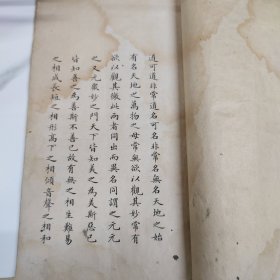 道可道非常道名可名非常名無名天地之始
有名天地之萬物之母常無欲以觀其妙常有
欲以觀其徼此兩者同出而異名同謂之元元
之又元衆妙之門天下皆知美之為美斯惡已
皆知善之為善斯不善已故有無之相生難易
之相成長短之相形高下之相傾音聲之相和